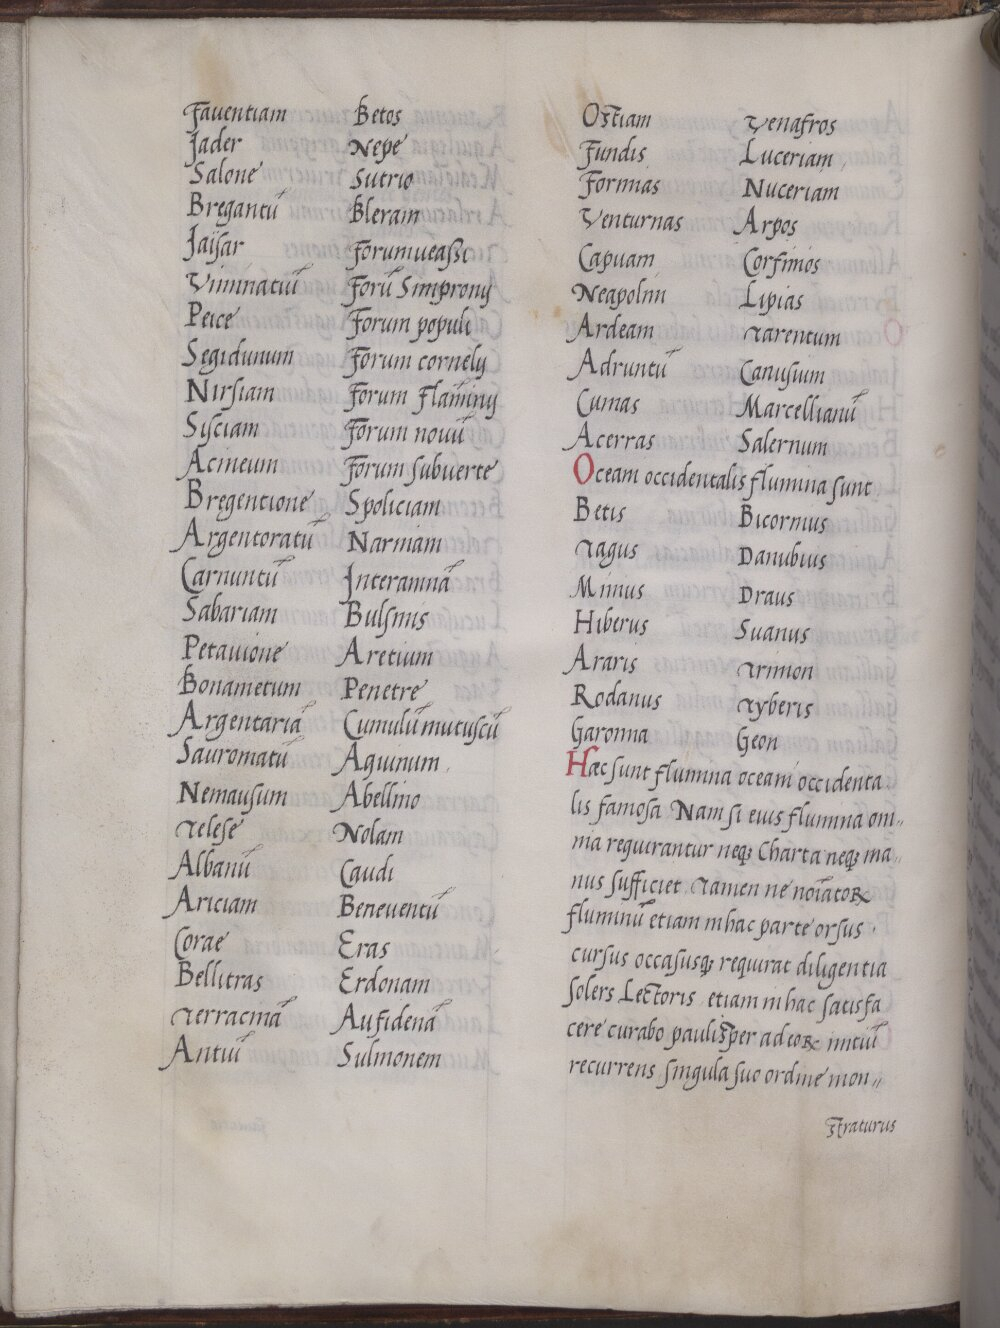 Faventiam
Jader
Salone
Bregantū
Jaisar
Viminatiū
Peice
Segidunum
Nirsiam
Sisciam
Acineum
Bregentione
Argentoratū
Carnuntū
Sabariam
Petauione
Bonametum
Argentariā
Sauromatū
Nemausum
Telese
Albanū
Ariciam
Corae
Bellitras
Terracinā
Antiū
Betos
Nepe
Sutrio
Bleram
Forumueasse
Forū Simprony
Forum populi
Forum cornely
Forum Flāminy
Forum nouū
Forum subuerte
Spoliciam
Narniam
Interamnā
Bulsinis
Aretium
Penetre
Cumulū mutuscū
Aquinum
Abellino
Nolam
Caudi
Beneuentū
Eras
Erdonam
Aufidenā
Sulmonem
Ostiam
Fundis
Formas
Venturnas
Capuam
Neapolim
Ardeam
Adruntū
Cumas
Acerras
Venafros
Luceriam
Nuceriam
Arpos
Corfinios
Lipias
Tarentum
Canusium
Marcellianū
Salernum
Oceam occidentalis flumina sunt
Betis
Tagus
Minius
Hiberus
Araris
Rodanus
Garonna
Bicornius
Danubius
Draus
Suanus
Trinion
Tyberis
Geon
Hæc sunt flumina oceani occidenta
lis famosa Nam si eius flumina om„
nia requirantur neqꝫ Charta neqꝫ ma„
nus sufficiet Tamen ne noīatoꝝ
fluminū etiam in hac parte orsus
cursus occasusqꝫ requirat diligentia
solers Lectoris etiam in hac satisfa
cere curabo paulisper ad eoꝝ initiū
recurrens singula suo ordine mon„
straturus